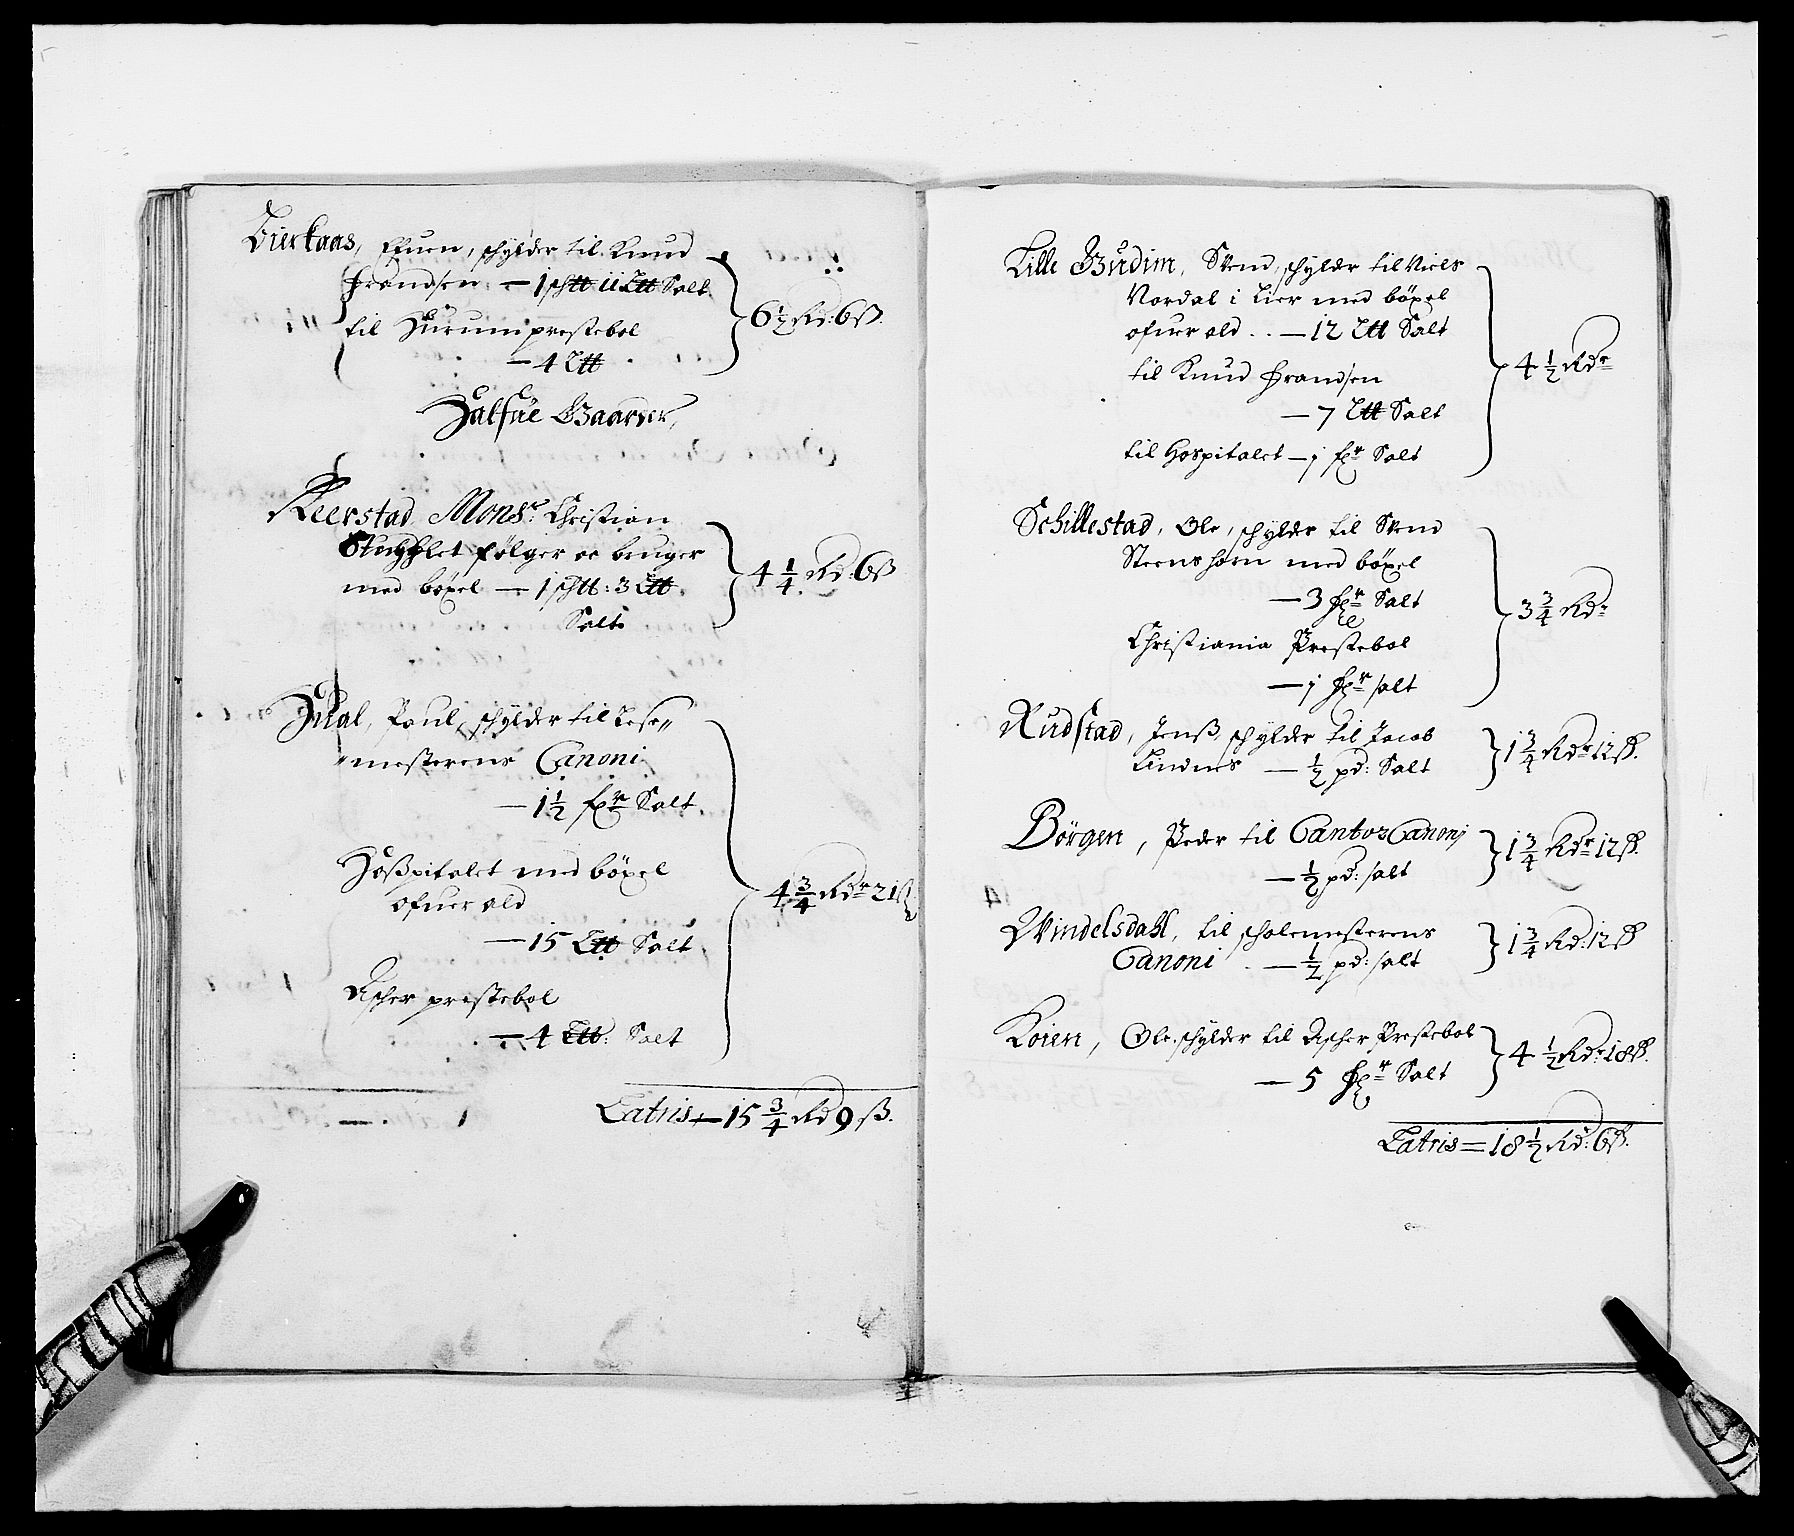 Bierkaas, Efuen, schylder til Knud
Frandsen — 1 schtt 11 Ltt Salt
til Hurum prestebol
— 4 Ltt
6½ Rd: 6 ß.
Halfue Gaarder,
Keerstad Monsr: Christian
følger oc bruger
med böxel — 1 schtt: 3 Ltt.
Salt
4¼ Rd: 6 ß
Hual, Paul, schylder til Lese„
„mesterens Canoni
— 1½ fxr Salt.
Hoßpitalet med böxel
ofuer ald
— 15 Ltt Salt.
Ascher prestebol
— 4 Ltt: Salt
4¾ Rdr 21 ß
Latris — 15¾ Rd 9 ß.
Lille Gudim, Svend, schylder til Niels
Nordal i Lier med böxel
ofuer ald . . — 12 Ltt Salt
til Knud Frandsen
— 7 Ltt Salt
til Hospitalet — j fxr Salt
4½ Rdr
Schillestad, Ole, schylder til Svend
Steenshorn med böxel
— 3 fxr Salt
Christiania Prestebol
— j fxr salt
3¾ Rdr
Rudstad, Jenß, schylder til Jacob
Lindnes — ½ pd: Salt
1¾ Rdr 12 ß.
Börgen, Peder til Cantors Canonj
— ½ pd: salt
1¾ Rdr 12 ß.
Windelsdahl, til scholemesterens
Canoni . — ½ pd: salt
1¾ Rd: 12 ß
Koien, Ole schylder til Ascher Prestebol
— 5 fxr Salt
4½ Rdr 18 ß.
Latris = 18½ Rd: 6 ß.